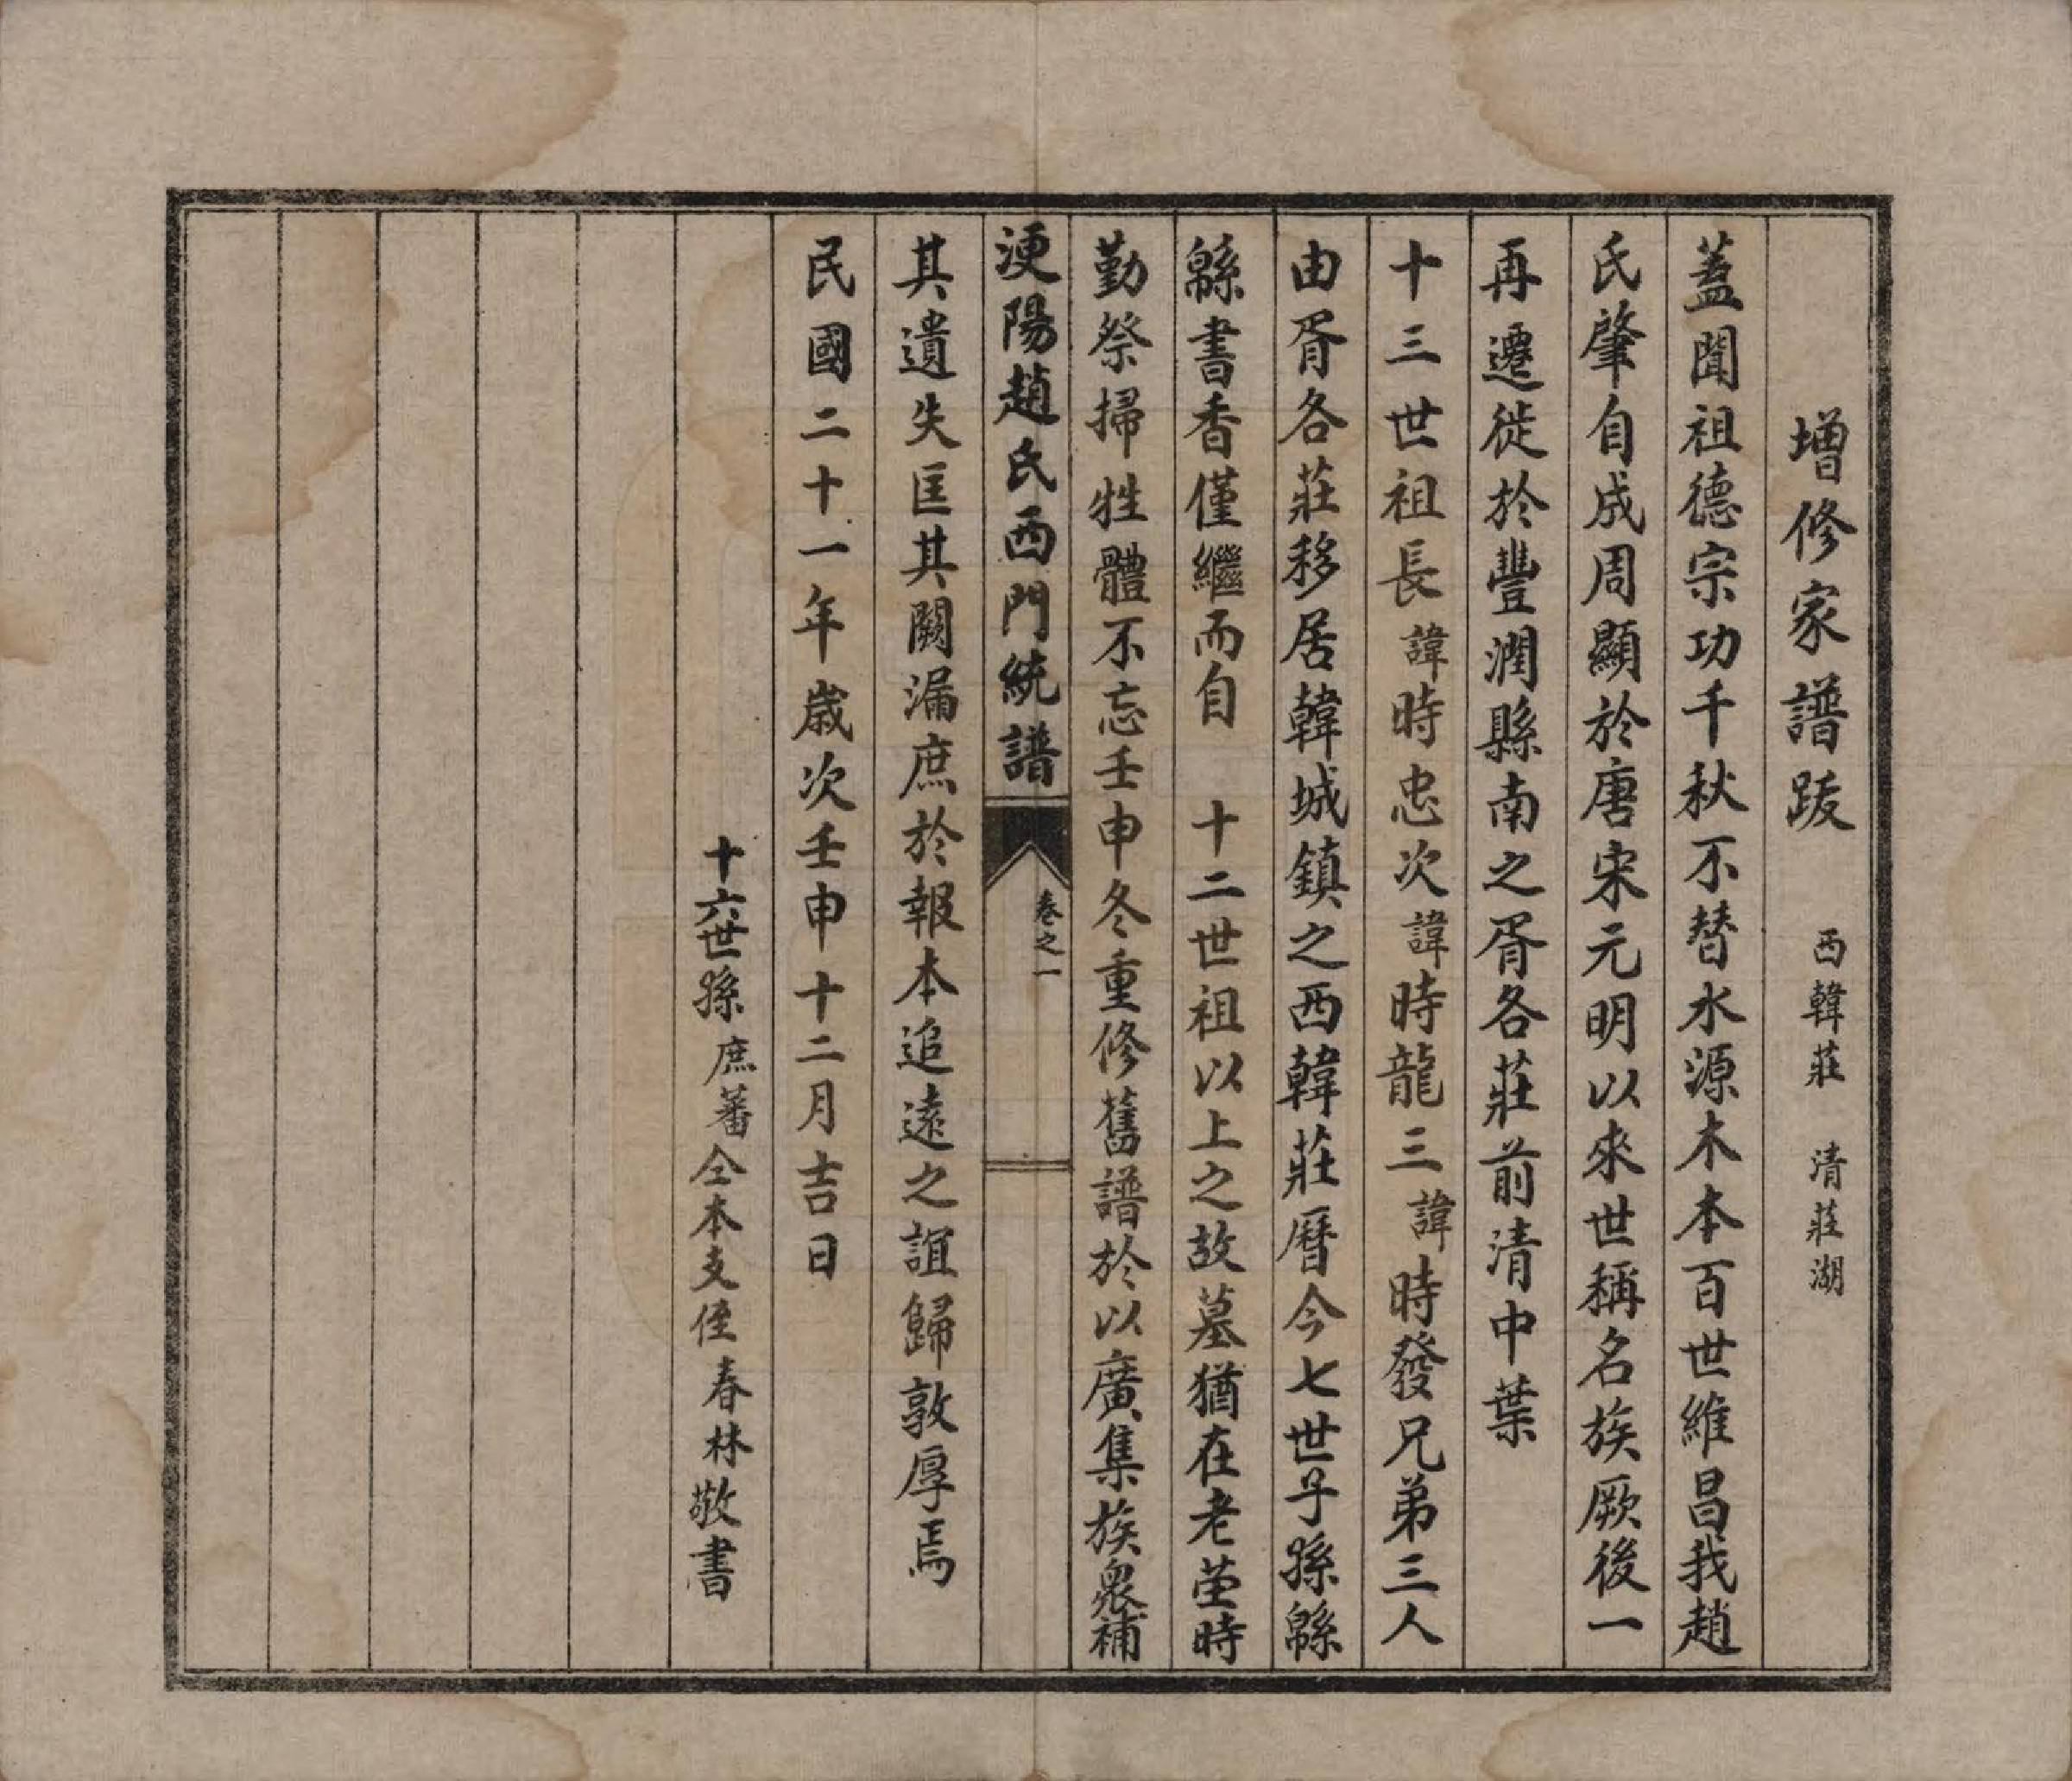 增修家譜跋　西韓莊　清莊湖
蓋聞祖德宗功千秋不替水源木本百世維昌我趙
氏肇自成周顯於唐宋元明以來世稱名族厥後一
再遷徙於豐潤縣南之胥各莊前清中葉
十三世祖長諱時忠次諱時龍三諱時發兄弟三人
由胥各莊移居韓城鎮之西韓莊曆今七世子孫緜
緜書香僅繼而自　十二世祖以上之故墓猶在老塋時
勤祭掃牲體不忘壬申冬重修舊譜於以廣集族衆補
浭陽趙氏西門統譜
卷之一
其遺失匡其闕漏庶於報本追遠之誼歸敦厚焉
民國二十一年歲次壬申十二月吉日
十六世孫庶蕃仝本支侄春林敬書